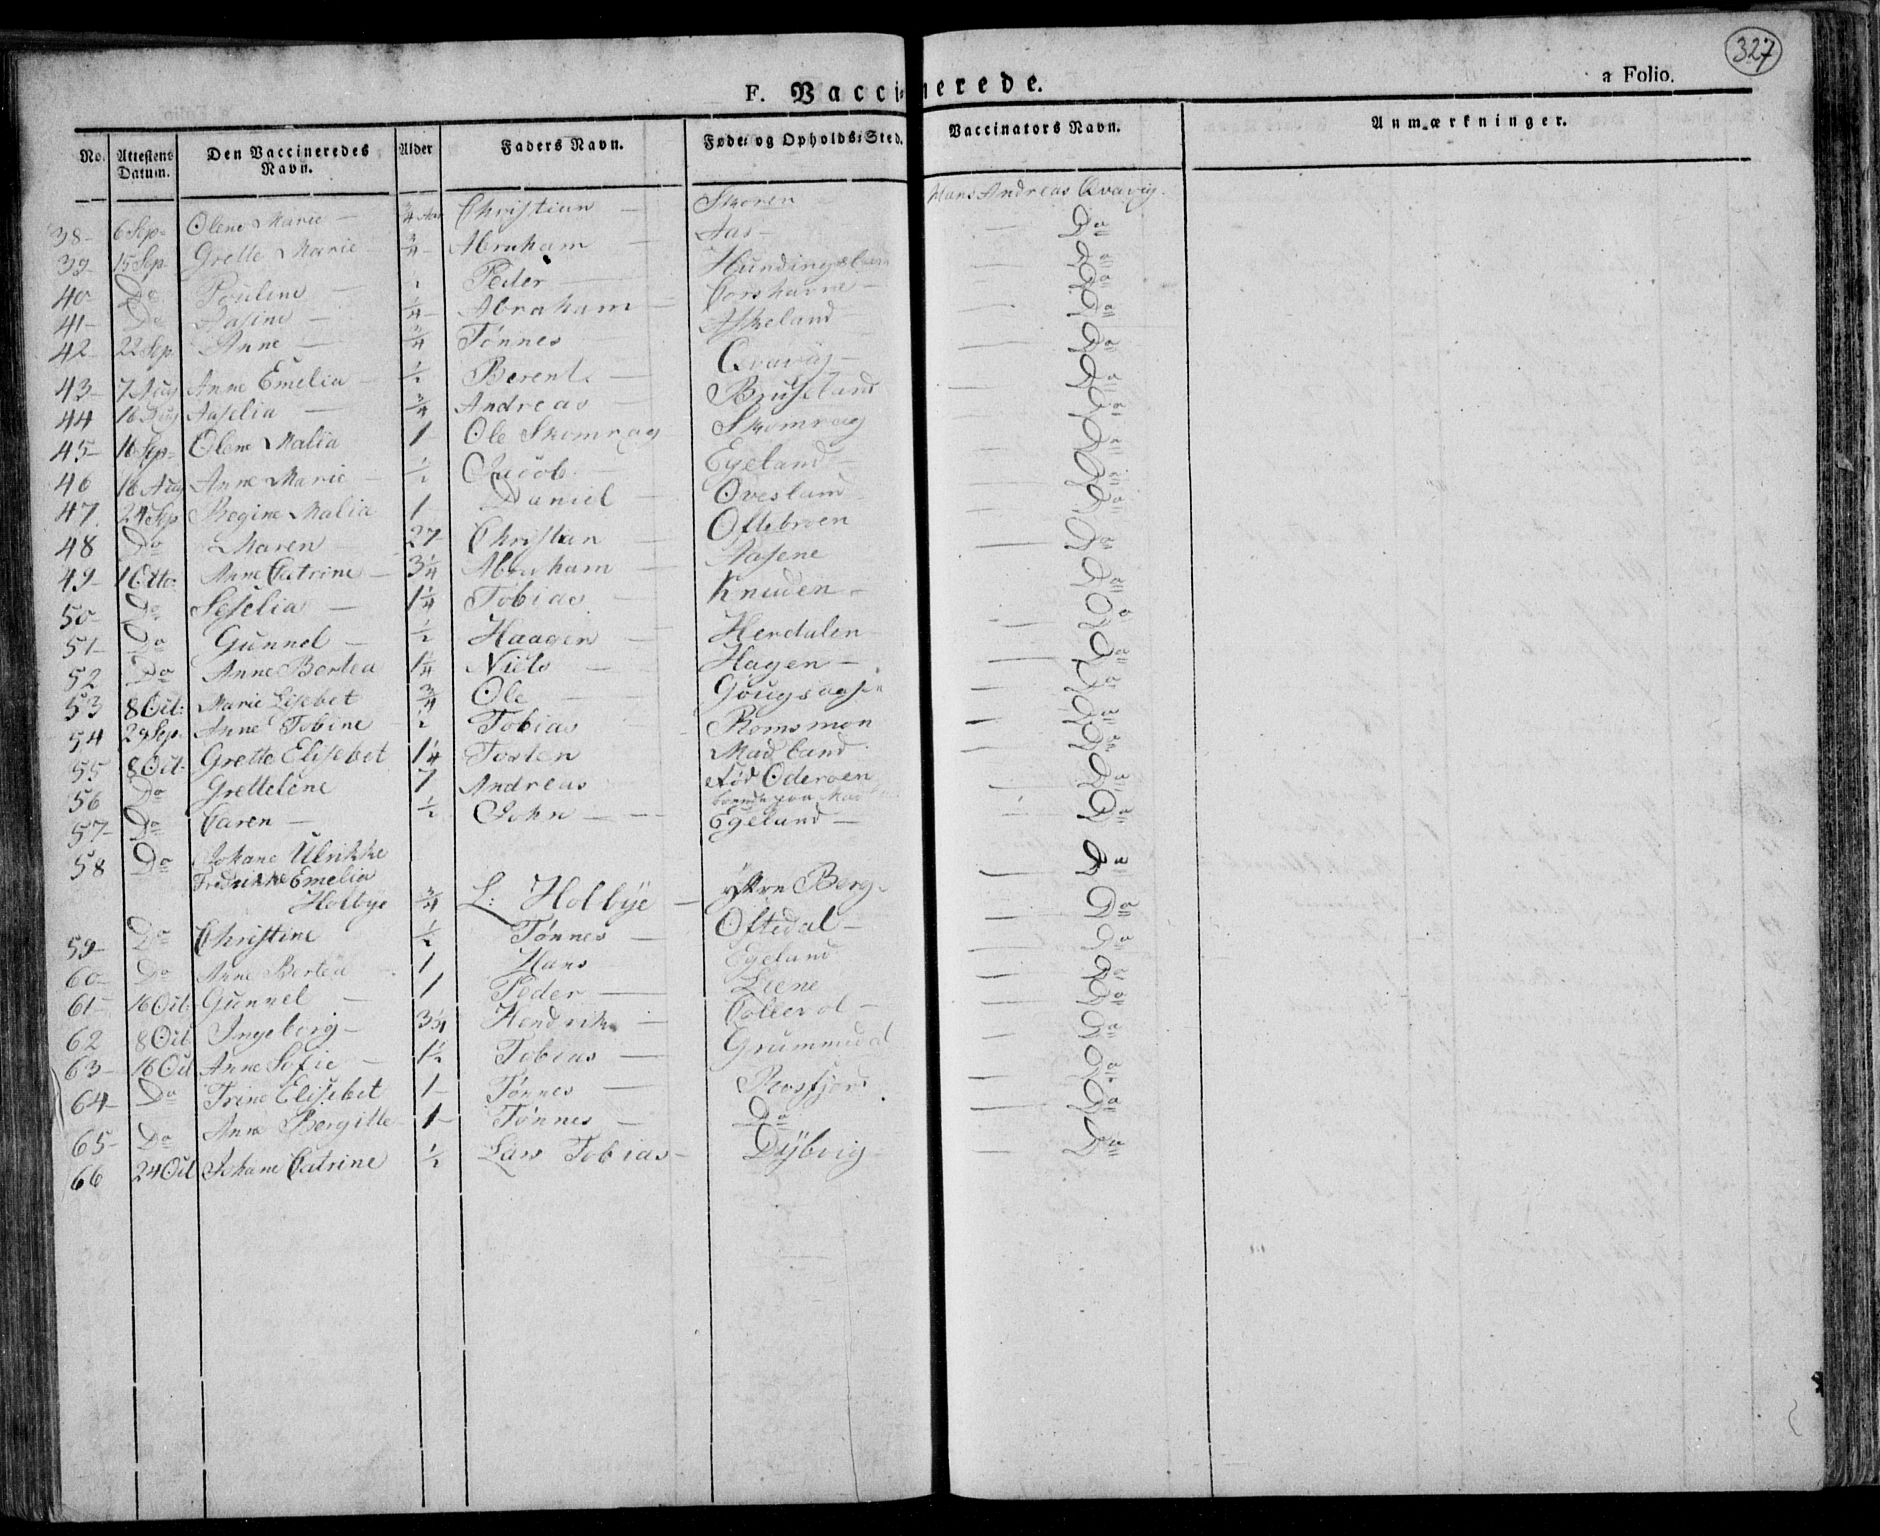 327
F. Vaccinerede.
a Folio.
No. Attestens Datum. Den Vaccineredes Navn. Alder Faders Navn. Føde- og Opholds-Sted. Vaccinators Navn. Anmærkninger.
38- 6 Sep- Olene Marie - 3/4 Aar Christian - Skoren - Hans Andreas Qvavig.
39- 15 Sep Grette Marie - 3/4 - Abraham - Aas - - Do
40- Do Pouline - Peder - - Do
41- Do Aasine - 1/4 - Abraham - - Do
42- 22 Sep Anne - 3/4 Tønnes Askeland - Do
43- 7 Aug Anne Emelia - 1/2 Berent - Qvavig - - Do
44 16 Aug Aaselia - 3/4 Andreas - Bruseland - Do
45- 16 Sep- Olene Malia 1 Ole Skomrag Skomrag - Do
46 16 Aug Anne Marie - 1/2 Jacob - Egeland - - Do
47. 24 Sep Regine Malia 1 Daniel - Øvesland - Do
48 Do Maren - 27 Christian - Oftebroen - Do
49- 1 Octo- Anne Catrine - 3 1/4 Abraham - Aasene - Do
50- Do Seselia - 1 1/4 Tobias - Knuden - - Do
51- Do Gunnel - 1/2 Haagen - Herdalen - Do
52 Do Anne Bertea 1 1/4 Niels - Hagen - - Do
53 8 Oct: Marie Lisebet 3/4 Ole - - Do
54 29 Sep. Anne Tobine - 1/2 Tobias Romsmon - Do
55 8 Oct- Grette Elisebet 1 1/4 Tosten Madland - Do
56 Do Grettelene 7 Andreas Fød Oderoen - Do
57- Do Caren - 1/2 John - - Egeland - - Do
58 Do Johane Ulrikke - Do
Fredrikke Emelia
Holbye 3/4 L: Holbye - Berg - Do
59- Do Christine 1/2 Tønnes - Oftedal - - Do
60- Do Anne Bertea - 1 Hans Egeland - Do
61- 16 Oct: Gunnel - 1 Peder - Liene - Do
62 8 Oct Ingeborg - 3 1/4 Hendrik - - Do
63- 16 Oct Anne Sofie - 1 1/2 Tobias - - Do
64- Do Trine Elisebet 1- Tønnes - Rosfjord - Do
65- Do Anne Bergitte 1- Tønnes - Do - Do
66 24 Oct Johane Catrine 1/2 Lars Tobias - Dÿbvig - Do